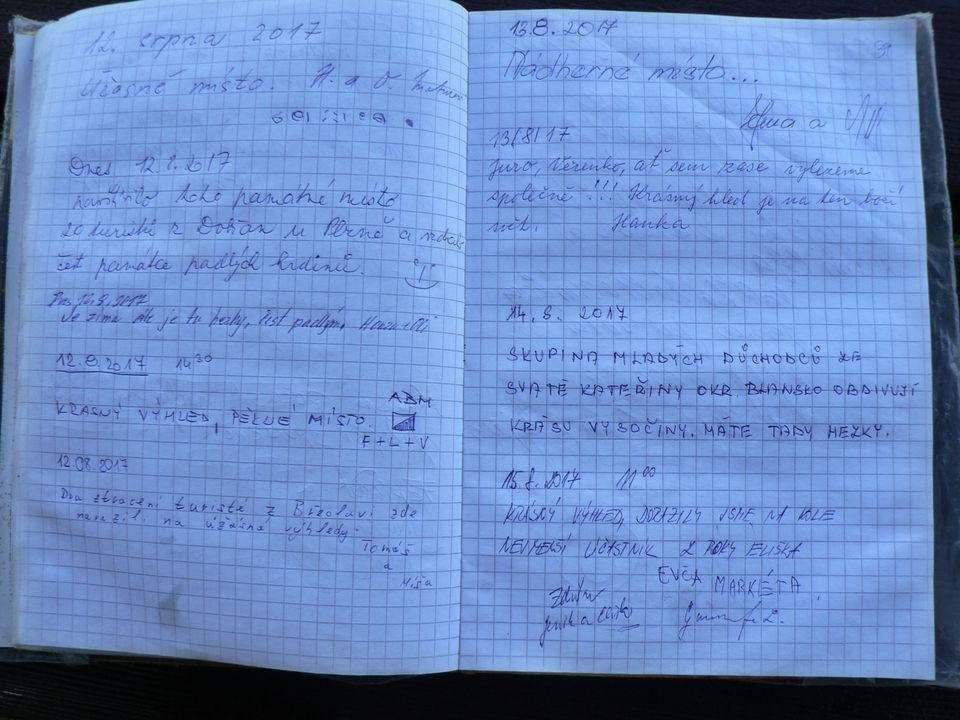 12. srpna 2017
Úžasné místo. H. a V.
Dnes 12.8.2017
navštívilo toto památné místo
20 turistů z Dobřan u Plzně a
čest památce padlých hrdinů.
Je zima ale je tu hezky, čest padlým,
12.8.2017 14 30
ABM
KRÁSNÝ VÝHLED, PĚKNÉ MÍSTO.
F+L+V
12.08.2017
Dva ztracení turisté z Břeclavi zde
narazili na úžasné výhledy.
Tomáš
a
Míša
13.8.2017
39
Nádherné místo...
a
13/8/17
Juro, Verenko, ať sem zase vylezeme
společně!!! Krásný hled je na ten boží
svět. Hanka
14. 8. 2017
SKUPINA MLADÝCH DŮCHODCŮ ZE
SVATÉ KATEŘINY OKR. BLANSKO OBDIVUJÍ
KRÁSU VYSOČINY. MÁTE TADY HEZKY.
15.8.2017 11 00
KRÁSNÝ VÝHLED, DORAZILY JSME NA KOLE
NEJMENŠÍ ÚČASTNÍK 2 ROKY ELIŠKA
EVČA MARKÉTA